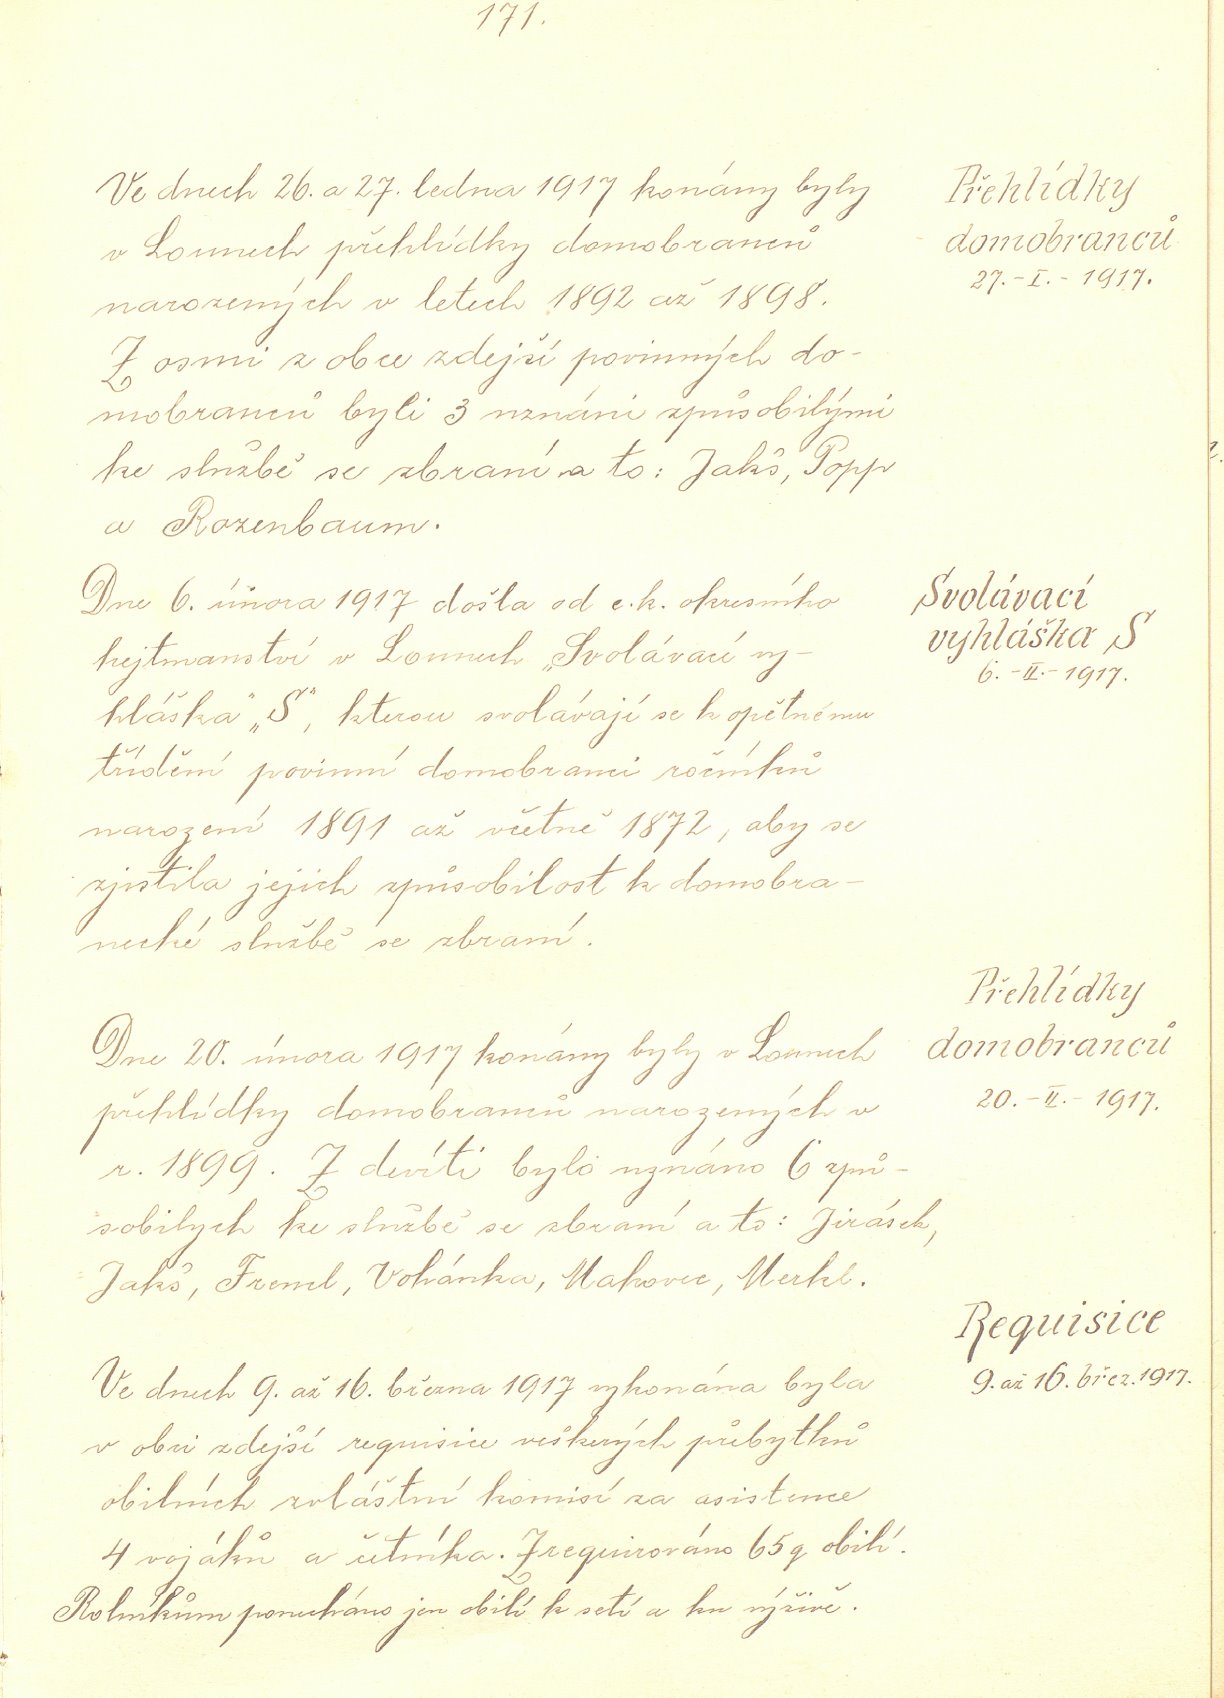 171.
Ve dnech 26. a 27. ledna 1917 konány byly
v Lounech přehlídky domobranců
narozených v letech 1892 až 1898.
Z osmi z obce zdejší povinných do-
mobranců byli 3 uznáni způsobilými
ke službě se zbraní a to: Jakš, Popp
a Rozenbaum.
Přehlídky
domobranců
27.-I.- 1917.
Dne 6. února 1917 došla od c.k. okresního
hejtmanství v Lounech „Svolávací vy-
hláška" „S", kterou svolávají se k opětnému
třídění povinní domobranci ročníků
narození 1891 až včetně 1872, aby se
zjistila jejich způsobilost k domobra-
necké službě se zbraní.
Svolávací
vyhláška S
6.-II.-1917.
Dne 20. února 1917 konány byly v Lounech
přehlídky domobranců narozených v
r. 1899. Z devíti bylo uznáno 6 způ-
sobilých ke službě se zbraní a to: Jirásek,
Jakš, Freml, Vohánka, Makovec, Merkl.
Přehlídky
domobranců
20.-II.- 1917.
Ve dnech 9. až 16. března 1917 vykonána byla
v obci zdejší requisice veškerých přebytků
obilních zvláštní komisí za asistence
4 vojáků a četníka. Zrequirováno 65 q obilí.
Rolníkům ponecháno jen obilí k setí a ku výživě.
Requisice
9. až 16. břez. 1917.